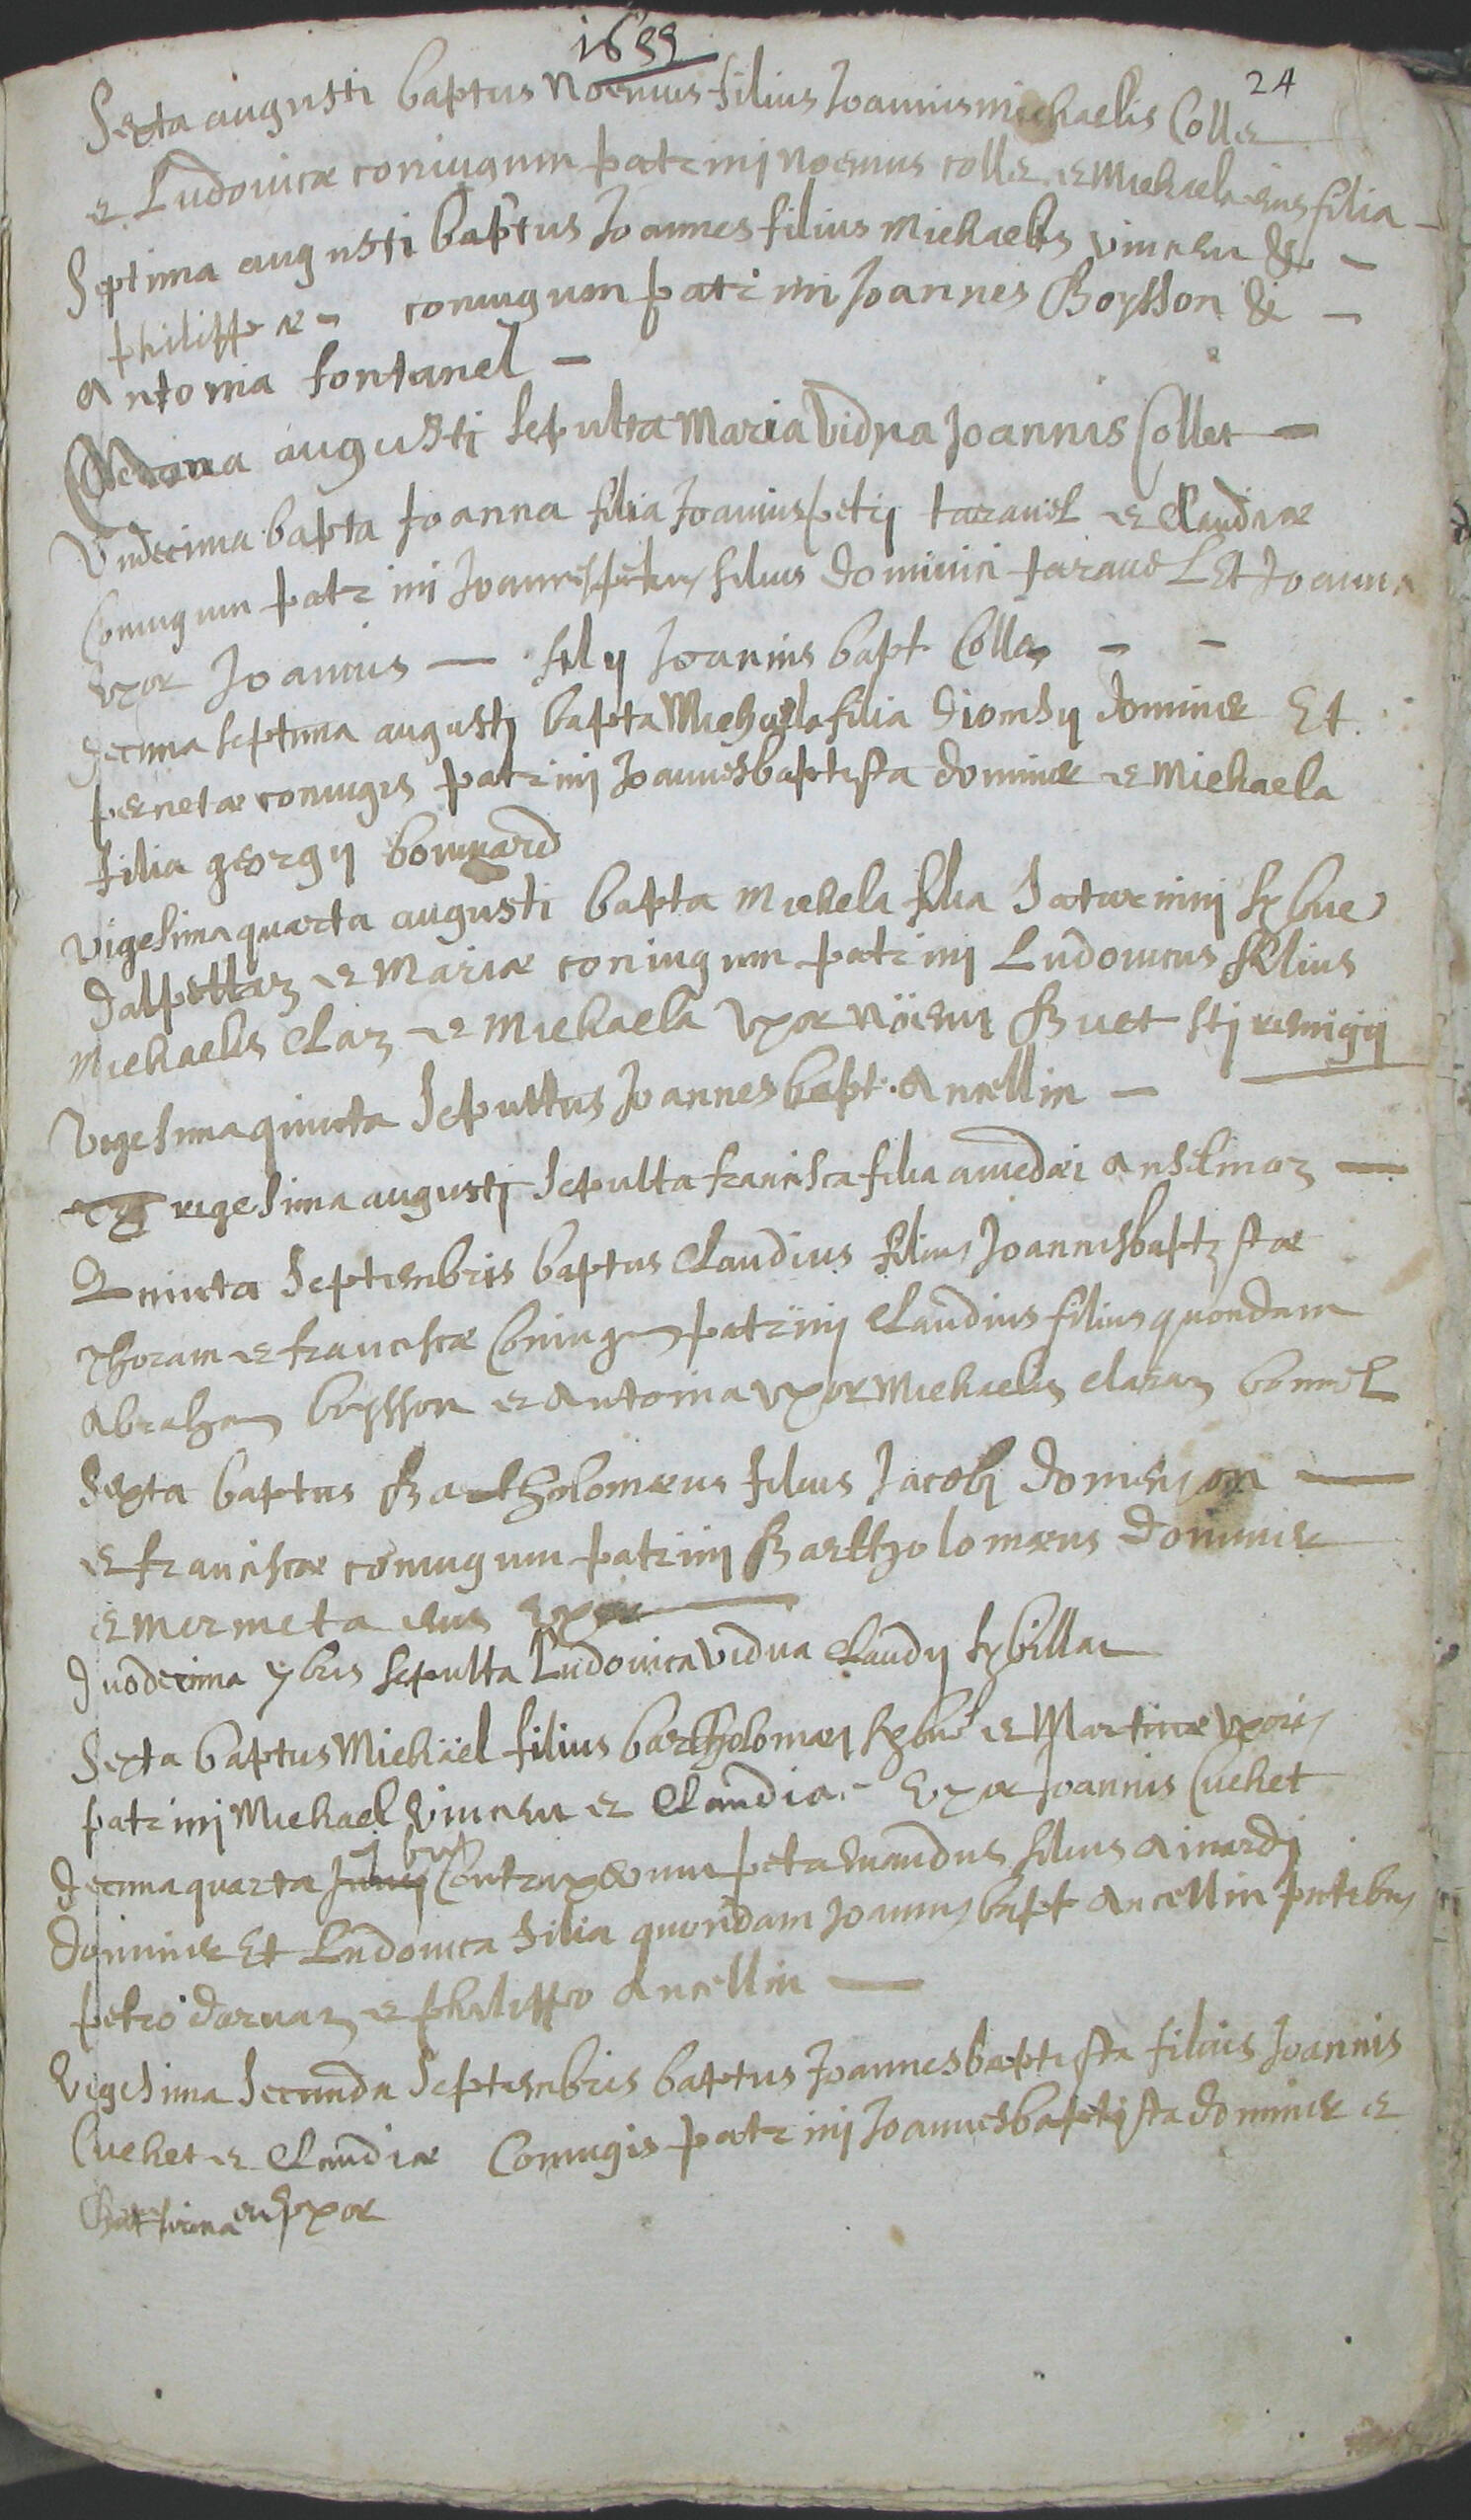 1699
24
Sexta augusti baptus Noemus filius Joannis michaelis Colle
et Ludovicæ coniugum patrinj noemus colle et Michaela eius filia
Septima augusti baptus Joannes filius Michaelis vincen &
philippæ coniugum patrini Joannes Boysson &
Antonia fontanel
augustj sepulta Maria Vidua Joannis Collet
Undecima bapta Joanna filia Joannis petrj taravel et Claudiæ
Coniugum patrinj Joannes petrus filius Dominici taravel Et Joanna
uxor Joannis filij Joannis bapt Colle
Decima septima augustj bapta Michaela filia Dionisij Domine Et
pernetæ coniugis patrinj Joannesbaptista domine et Michaela
filia georgij
vigesima quarta augusti bapta Michela filia Saturninj Sybue
dalpettaz et Mariæ coniugum patrinj Ludovicus filius
Michaelis Claz et Michaela Uxor Nöemi Buet stj remigij
Vigesima quinta Sepultus Joannes bapt. Ancellin
trigesima augustj Sepulta francisca filia amedei Anselmoz
Quinta Septembris baptus Claudius filius Joannisbaptistæ
Thoram et franciscæ Coniugum patrinj Claudius filius quondam
Abraham boysson et Antonia Uxor Michaelis claraz bonnel
Sexta baptus Bartholomeus filius Jacobj domenjon
et franciscæ coniugum patrinj Bartholomeus Domine
et mermeta eius uxor
Duodecima 7bris sepulta Ludovica Vidua Claudij Sybillat
Sexta baptus Michäel filius bartholomej Sybue et Martinæ Uxoris
patrinj Michael Vincen et Claudia uxor Joannis Cuchet
7bris
Decima quarta Contraxerunt petamandus filius Ainardj
Domine Et Ludovica filia quondam Joannis bapt Ancellin ptibus
petro darvaz et philippo Ancellin
Vigesima Secunda Septembris baptus Joannesbaptista filius Joannis
Cuchet et Claudiæ Coniugis patrinj Joannesbaptista domine et
eius uxor